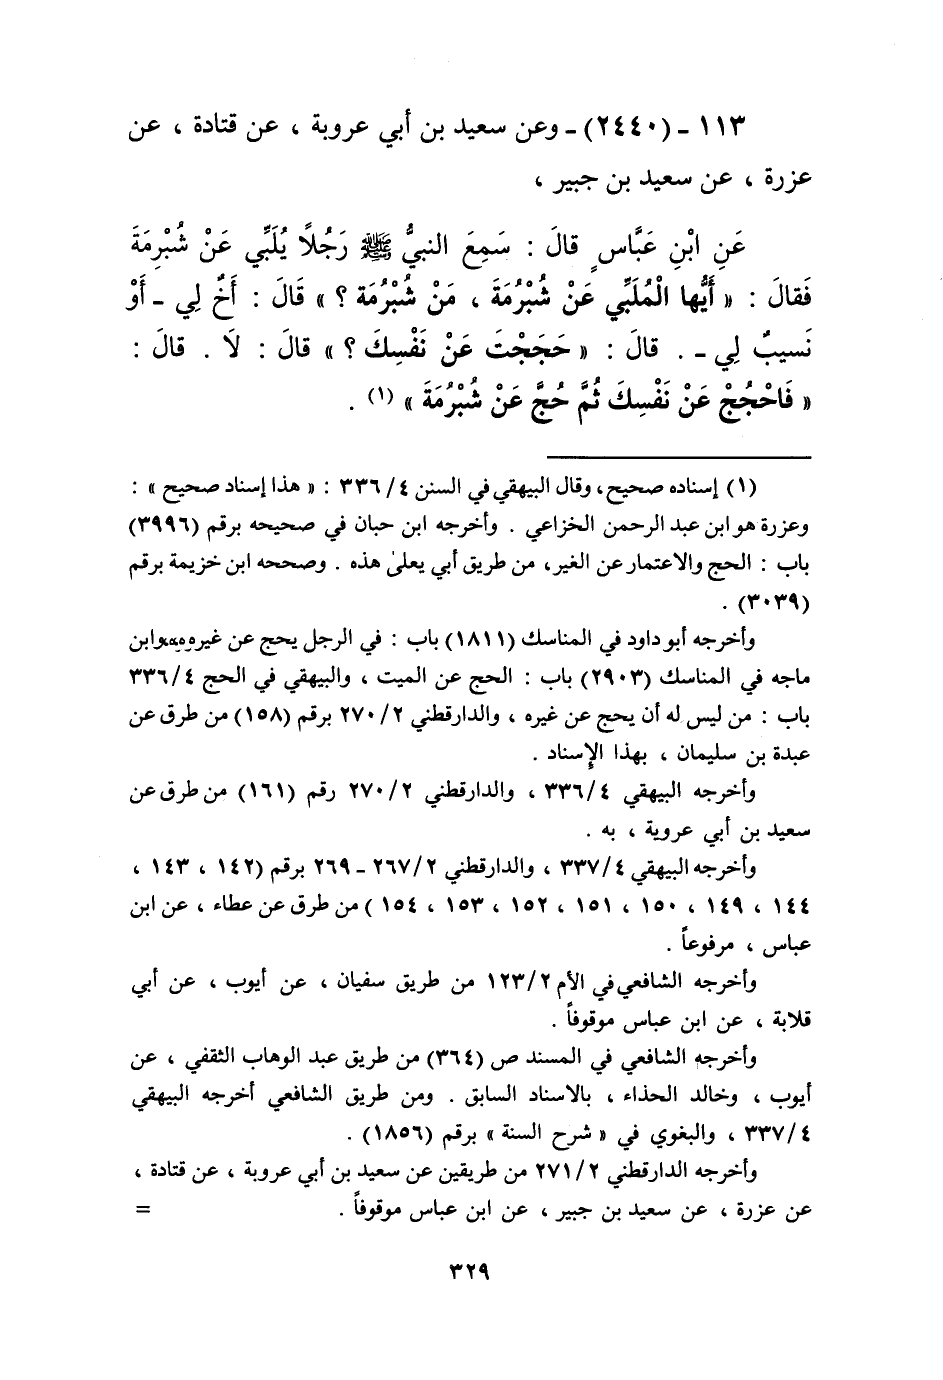 ١١٣ ـ (٢٤٤٠) ـ وعن سعيد بن أبي عروبة ، عن قتادة ، عن
عزرة ، عن سعيد بن جبير ،
عَنِ ابْنِ عَبَّاسٍ قالَ : سَمِعَ النبيُّ ﷺ رَجُلاً يُلَبِّي عَنْ شُبْرِمَةَ
فَقالَ : « أَيُّها الْمُلَبِّي عَنْ شُبْرُمَةَ ، مَنْ شُبْرُمَة ؟ » قَالَ : أَخٌ لِي ـ أَوْ
نَسيبٌ لِي ـ . قالَ : « حَجَجْتَ عَنْ نَفْسِكَ ؟ » قالَ : لَا . قالَ :
« فَاحْجُجْ عَنْ نَفْسِكَ ثُمَّ حُجَّ عَنْ شُبْرُمَةَ » (١) .
(١) إسناده صحيح، وقال البيهقي في السنن ٤/ ٣٣٦ : « هذا إسناد صحيح » :
وعزرة هو ابن عبد الرحمن الخزاعي . وأخرجه ابن حبان في صحيحه برقم (٣٩٩٦)
باب : الحج والاعتمار عن الغير، من طريق أبي يعلىٰ هذه . وصححه ابن خزيمة برقم
(٣٠٣٩) .
وأخرجه أبو داود في المناسك (١٨١١) باب : في الرجل يحج عن غيره، وابن
ماجه في المناسك (٢٩٠٣) باب : الحج عن الميت ، والبيهقي في الحج ٤/ ٣٣٦
باب : من ليس له أن يحج عن غيره ، والدارقطني ٢/ ٢٧٠ برقم (١٥٨) من طرق عن
عبدة بن سليمان ، بهذا الإسناد .
وأخرجه البيهقي ٤/ ٣٣٦ ، والدارقطني ٢/ ٢٧٠ رقم (١٦١) من طرق عن
سعيد بن أبي عروبة ، به .
وأخرجه البيهقي ٤/ ٣٣٧ ، والدارقطني ٢/ ٢٦٧ ـ ٢٦٩ برقم (١٤٢ ، ١٤٣ ،
١٤٤ ، ١٤٩ ، ١٥٠ ، ١٥١ ، ١٥٢ ، ١٥٣ ، ١٥٤ ) من طرق عن عطاء ، عن ابن
عباس ، مرفوعاً .
وأخرجه الشافعي في الأم ٢/ ١٢٣ من طريق سفيان ، عن أيوب ، عن أبي
قلابة ، عن ابن عباس موقوفاً .
وأخرجه الشافعي في المسند ص (٣٦٤) من طريق عبد الوهاب الثقفي ، عن
أيوب ، وخالد الحذاء ، بالاسناد السابق . ومن طريق الشافعي أخرجه البيهقي
٤/ ٣٣٧ ، والبغوي في « شرح السنة » برقم (١٨٥٦) .
وأخرجه الدارقطني ٢/ ٢٧١ من طريقين عن سعيد بن أبي عروبة ، عن قتادة ،
عن عزرة ، عن سعيد بن جبير ، عن ابن عباس موقوفاً . =
٣٢٩